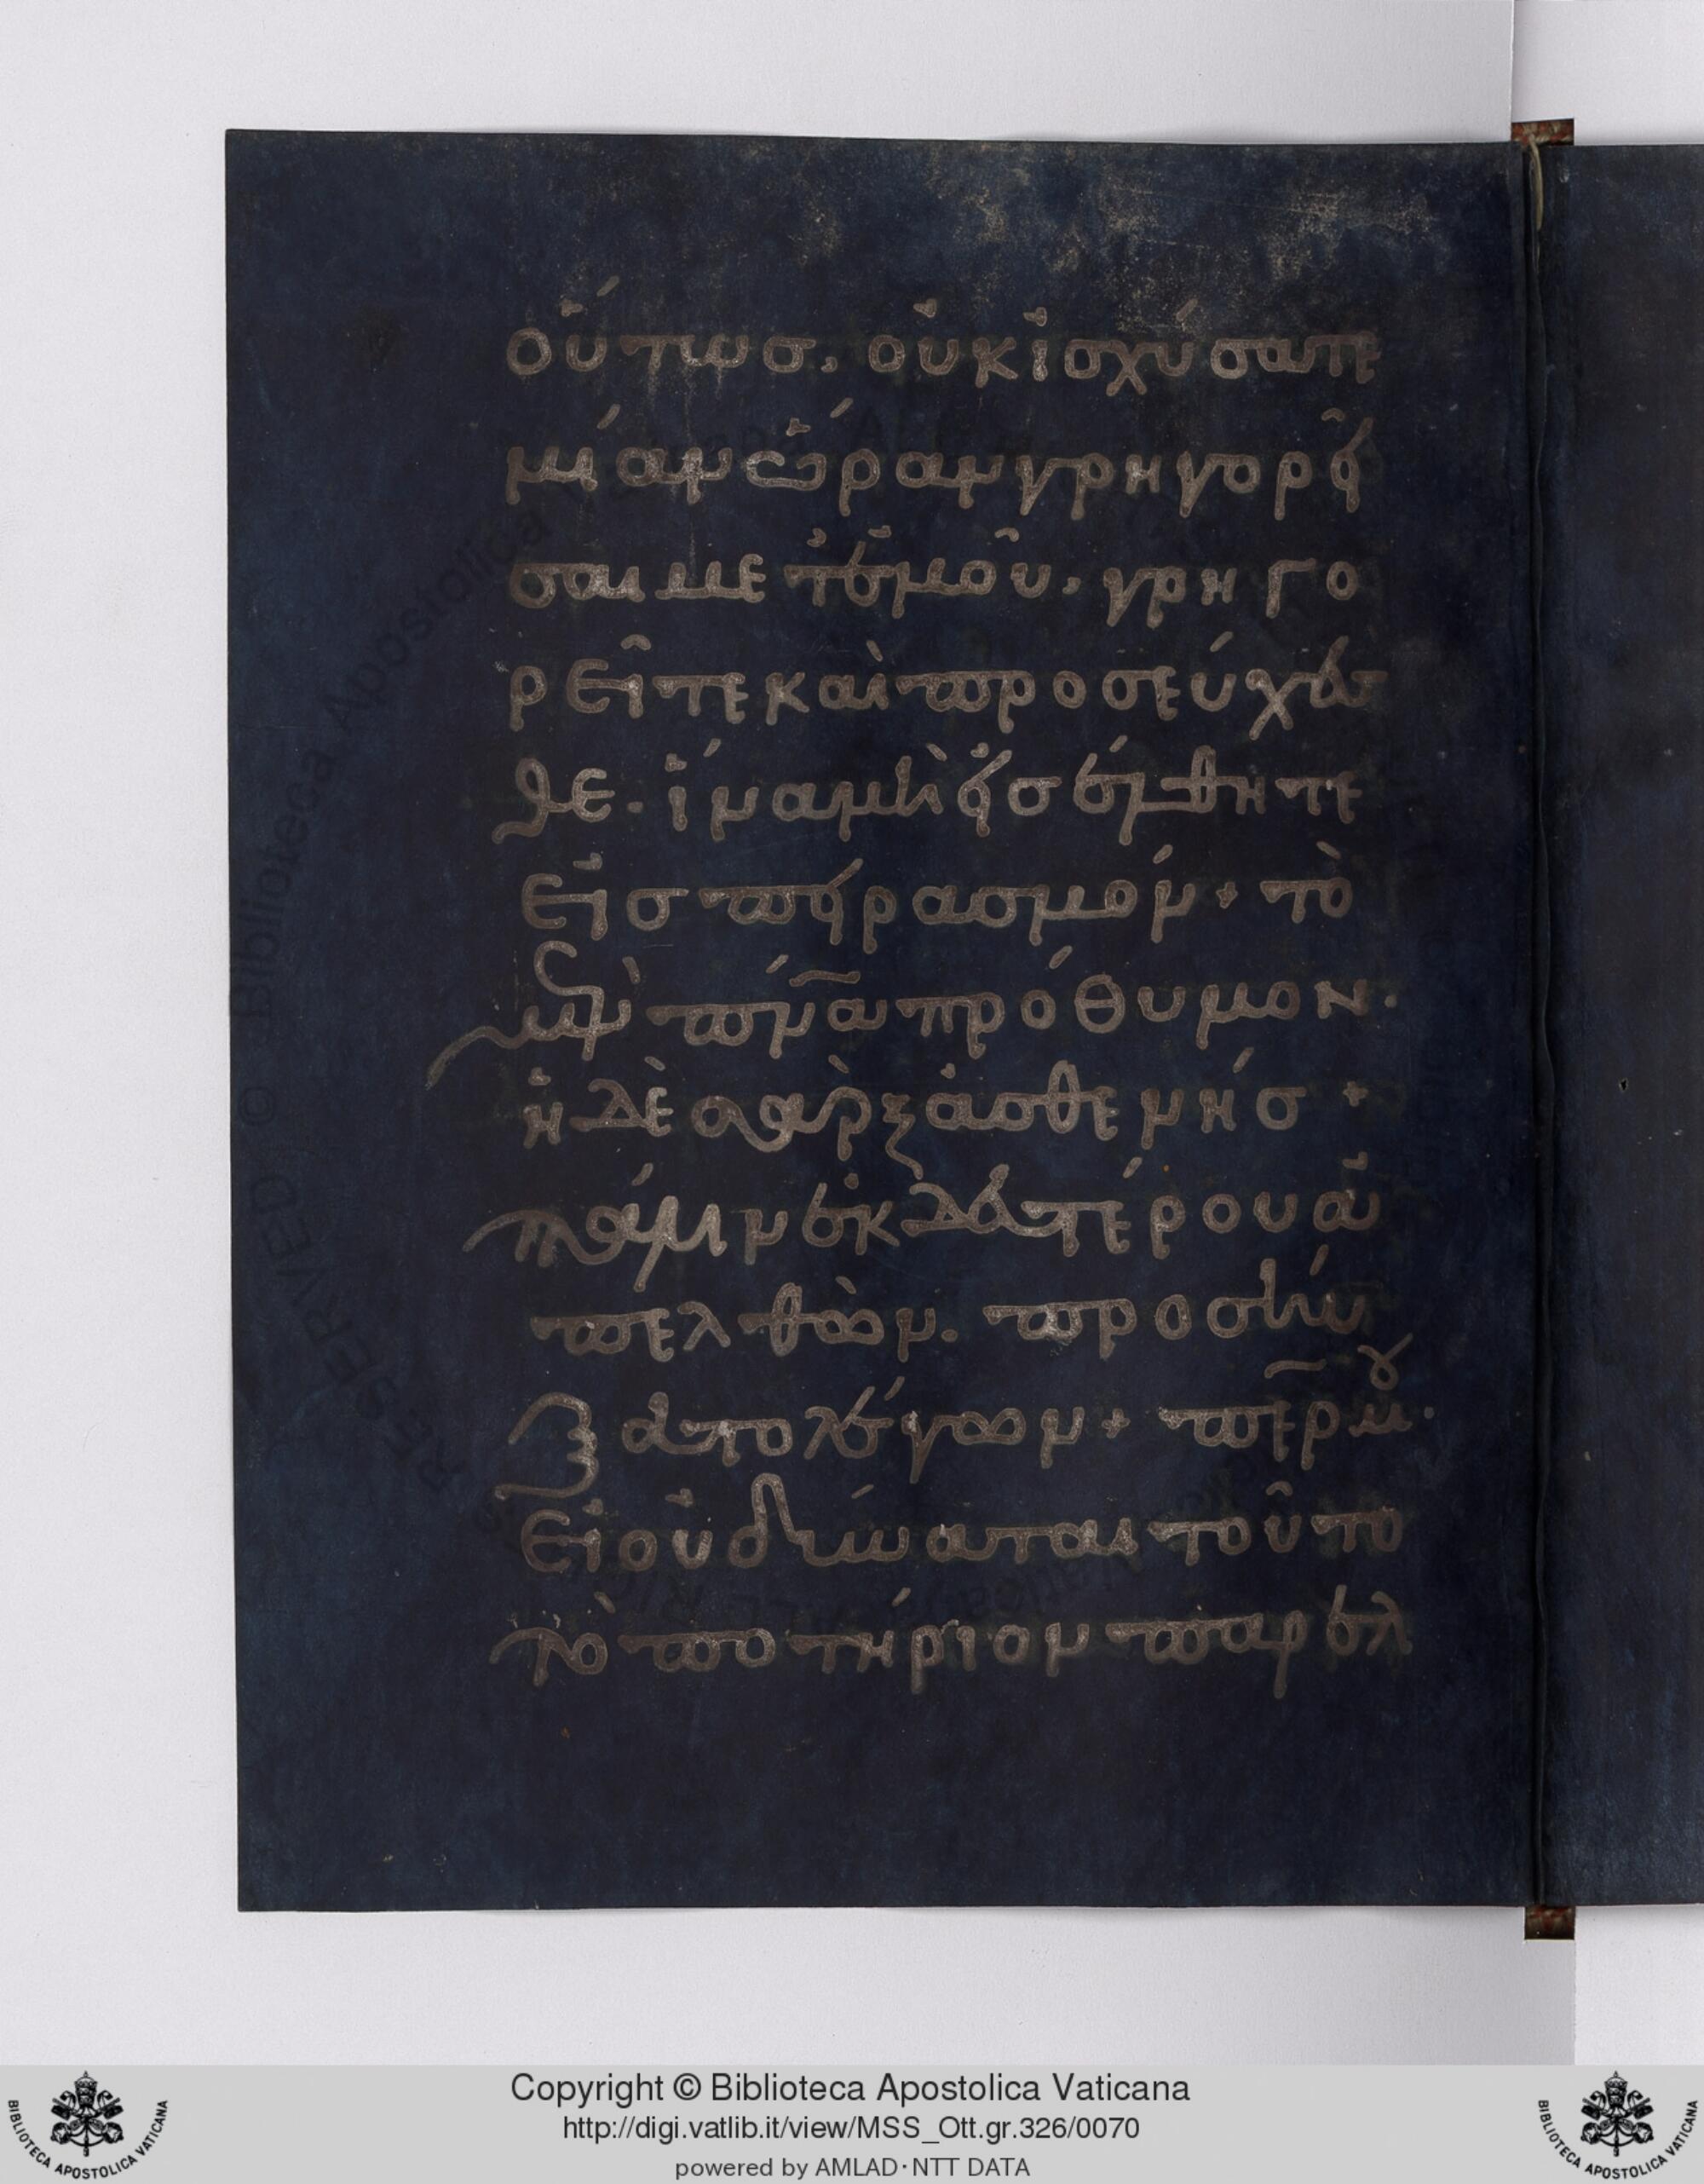 οὕτωσ, οὐκ ἰσχύσατε
μίαν ὥραν γρηγορῆ
σαι μετ ἐμοῦ, γρηγο
ρεῖτε καὶ προσεύχεσ
θε. ἵνα μὴ εἰσέλθητε
εἰσ πειρασμόν + τὸ
μὲν πνα πρόθυμον.
ἡ δὲ σὰρξ ἀσθενήσ +
πάλιν ἐκ δευτέρου ἀ
πελθὼν. προσηύ
ξατο λέγων + περ μου.
Εἰ οὐ δύναται τοῦτο
τὸ ποτήριον παρελ
Copyright © Biblioteca Apostolica Vaticana
http://digi.vatlib.it/view/MSS_Ott.gr.326/0070
powered by AMLAD·NTT DATA
BIBLIOTECA APOSTOLICA VATICANA
BIBLIOTECA APOSTOLICA VATICANA